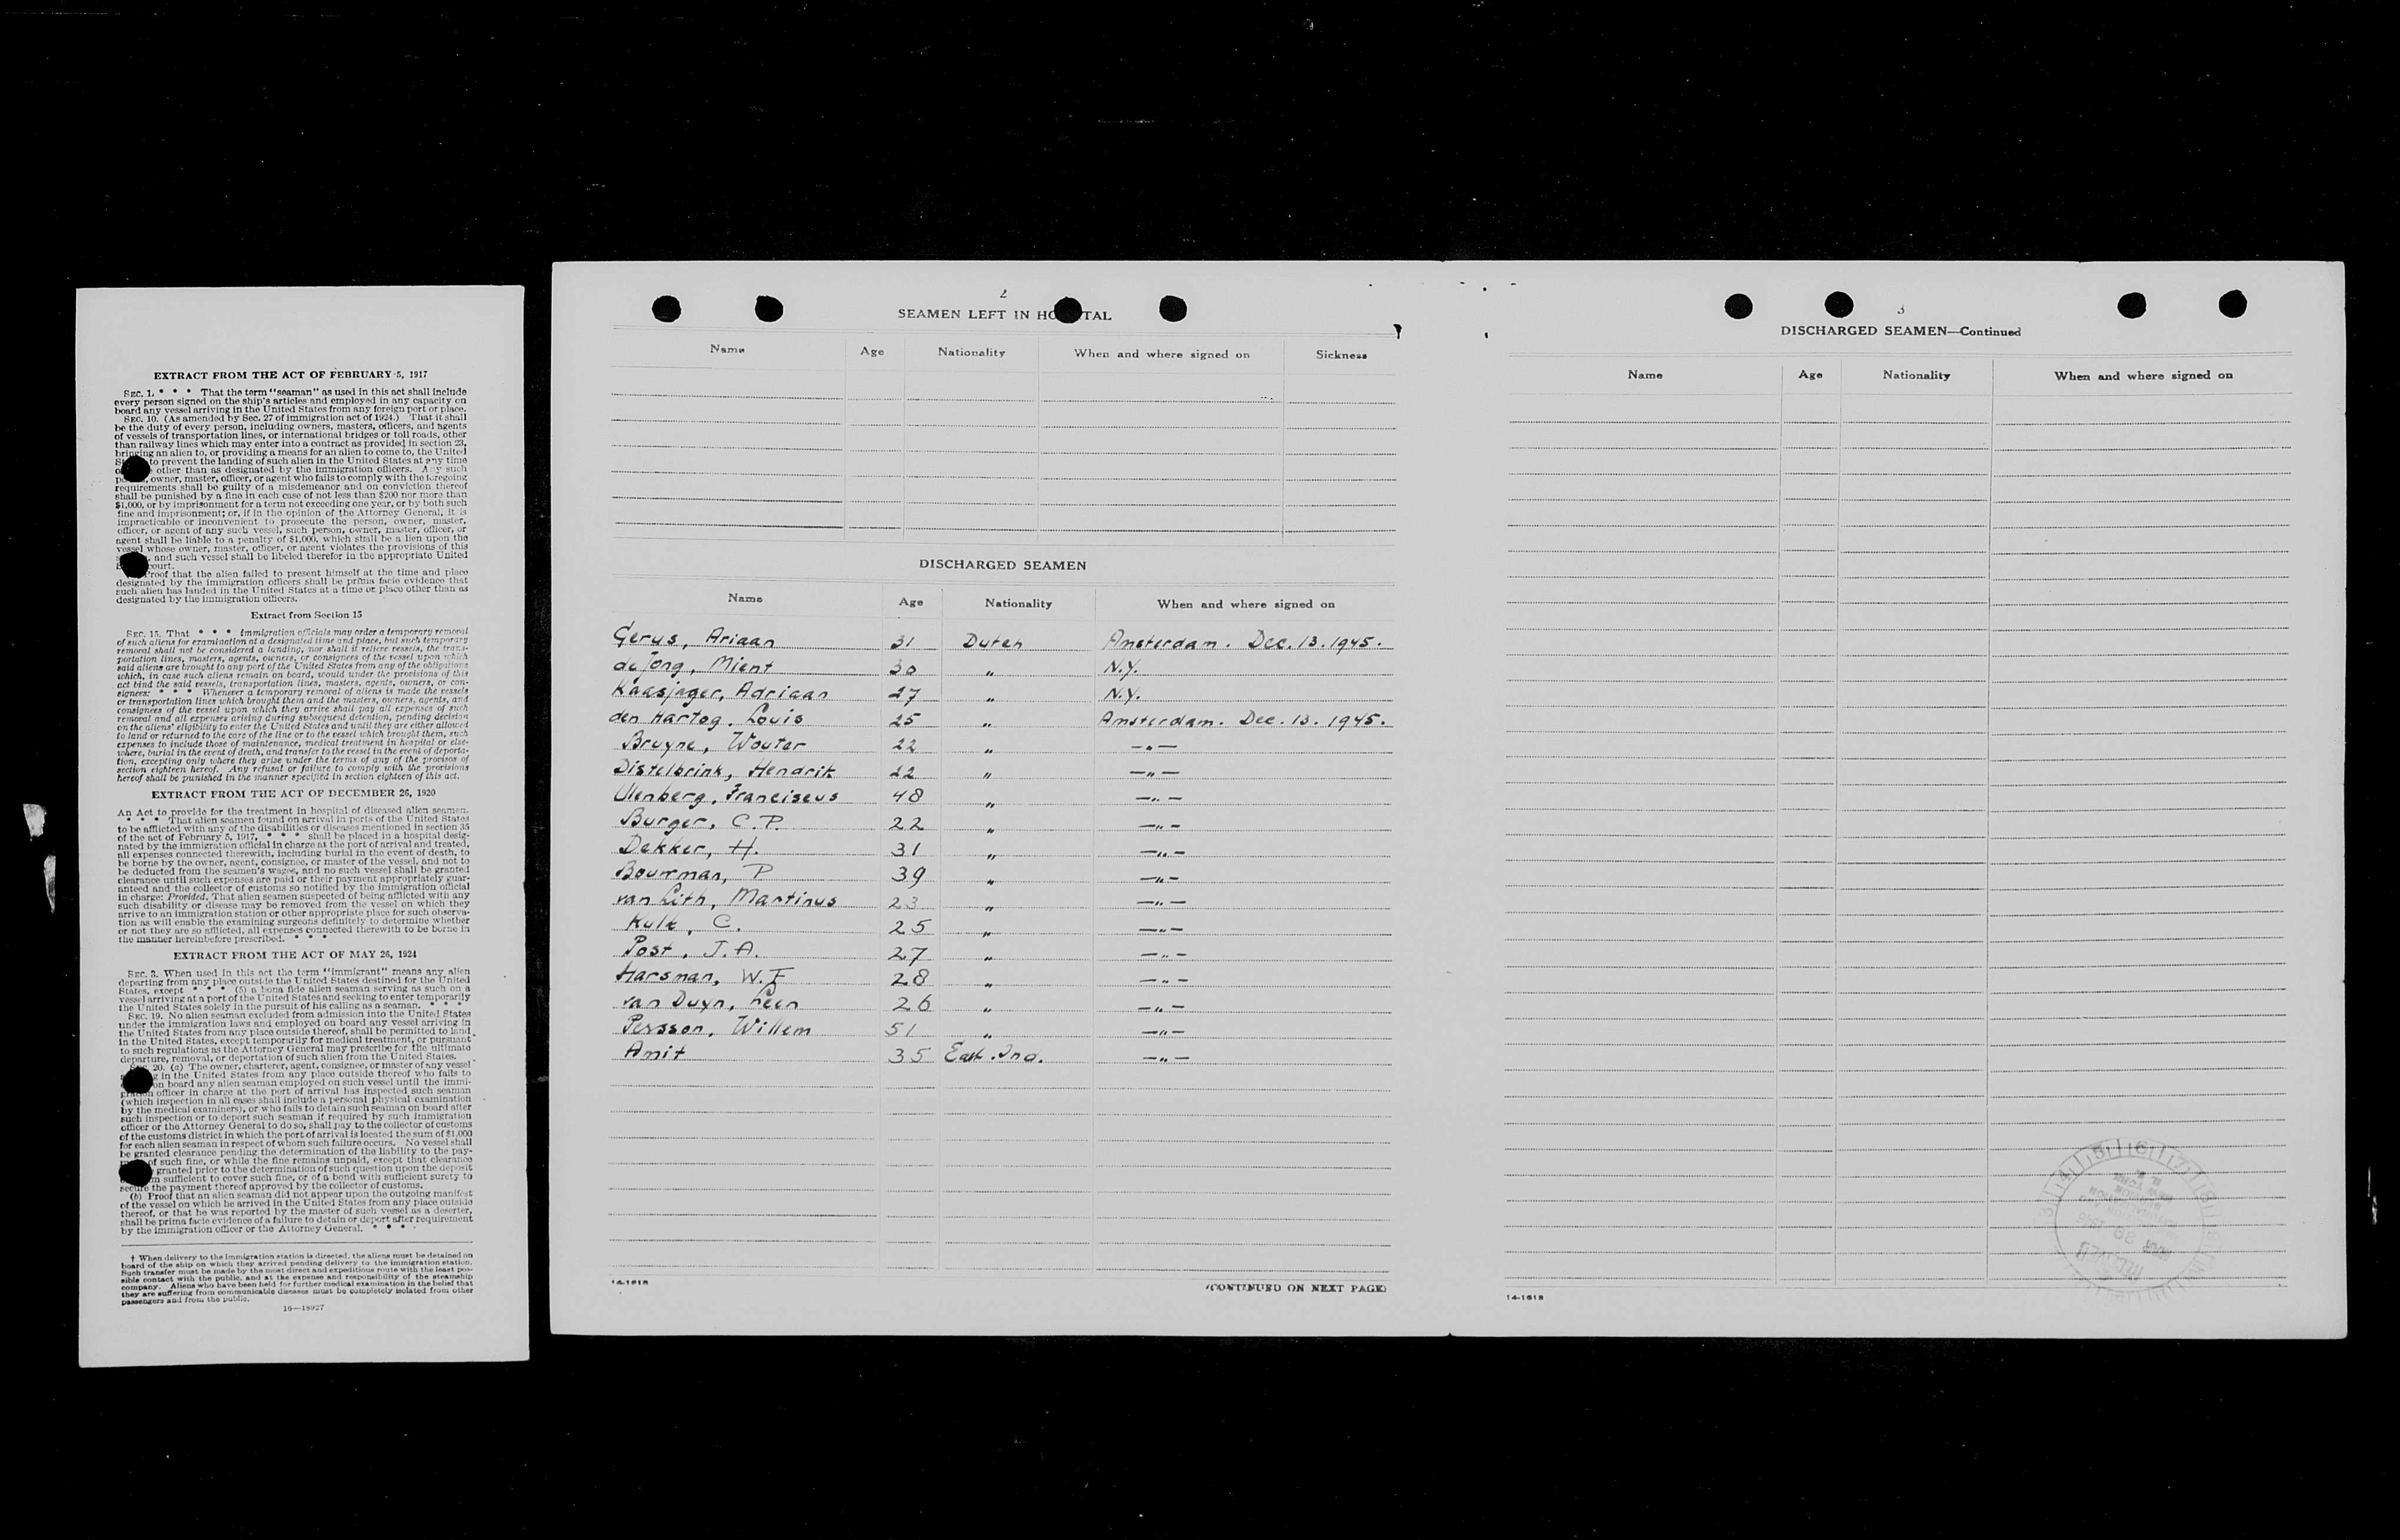 EXTRACT FROM THE ACT OF FEBRUARY 5, 1917
SEC. 1. * * * That the term "seaman" as used in this act shall include
every person signed on the ship's articles and employed in any capacity on
board any vessel arriving in the United States from any foreign port or place.
SEC. 10. (As amended by Sec. 27 of immigration act of 1924.) That it shall
be the duty of every person, including owners, masters, officers, and agents
of vessels of transportation lines, or international bridges or toll roads, other
than railway lines which may enter into a contract as provided in section 23,
bringing an alien to, or providing a means for an alien to come to, the United
to prevent the landing of such alien in the United States at any time
other than as designated by the immigration officers. Any such
owner, master, officer, or agent who fails to comply with the foregoing
requirements shall be guilty of a misdemeanor and on conviction thereof
shall be punished by a fine in each case of not less than $200 nor more than
$1,000, or by imprisonment for a term not exceeding one year, or by both such
fine and imprisonment; or, if in the opinion of the Attorney General, it is
impracticable or inconvenient to prosecute the person, owner, master,
officer, or agent of any such vessel, such person, owner, master, officer, or
agent shall be liable to a penalty of $1,000, which shall be a lien upon the
vessel whose owner, master, officer, or agent violates the provisions of this
and such vessel shall be libeled therefor in the appropriate United
court.
Proof that the alien failed to present himself at the time and place
designated by the immigration officers shall be prima facie evidence that
such alien has landed in the United States at a time or place other than as
designated by the immigration officers.
Extract from Section 15
SEC. 15. That * * * Immigration officials may order a temporary removal
of such aliens for examination at a designated time and place, but such temporary
removal shall not be considered a landing, nor shall it relieve vessels, the trans-
portation lines, masters, agents, owners, or consignees of the vessel upon which
said aliens are brought to any port of the United States from any of the obligations
which, in case such aliens remain on board, would under the provisions of this
act bind the said vessels, transportation lines, masters, agents, owners, or con-
signees: * * * Whenever a temporary removal of aliens is made the vessels
or transportation lines which brought them and the masters, owners, agents, and
consignees of the vessel upon which they arrive shall pay all expenses of such
removal and all expenses arising during subsequent detention, pending decision
on the aliens' eligibility to enter the United States and until they are either allowed
to land or returned to the care of the line or to the vessel which brought them, such
expenses to include those of maintenance, medical treatment in hospital or else-
where, burial in the event of death, and transfer to the vessel in the event of deporta-
tion, excepting only where they arise under the terms of any of the provisos of
section eighteen hereof. Any refusal or failure to comply with the provisions
hereof shall be punished in the manner specified in section eighteen of this act.
EXTRACT FROM THE ACT OF DECEMBER 26, 1920
An Act to provide for the treatment in hospital of diseased alien seamen.
* * * That alien seamen found on arrival in ports of the United States
to be afflicted with any of the disabilities or diseases mentioned in section 35
of the act of February 5, 1917, * * * shall be placed in a hospital desig-
nated by the immigration official in charge at the port of arrival and treated,
all expenses connected therewith, including burial in the event of death, to
be borne by the owner, agent, consignee, or master of the vessel, and not to
be deducted from the seamen's wages, and no such vessel shall be granted
clearance until such expenses are paid or their payment appropriately guar-
anteed and the collector of customs so notified by the immigration official
in charge: Provided, That alien seamen suspected of being afflicted with any
such disability or disease may be removed from the vessel on which they
arrive to an immigration station or other appropriate place for such observa-
tion as will enable the examining surgeons definitely to determine whether
or not they are so afflicted, all expenses connected therewith to be borne in
the manner hereinbefore prescribed. * * *
EXTRACT FROM THE ACT OF MAY 26, 1924
SEC. 3. When used in this act the term "immigrant" means any alien
departing from any place outside the United States destined for the United
States, except * * * (5) a bona fide alien seaman serving as such on a
vessel arriving at a port of the United States and seeking to enter temporarily
the United States solely in the pursuit of his calling as a seaman. * * *
SEC. 19. No alien seaman excluded from admission into the United States
under the immigration laws and employed on board any vessel arriving in
the United States from any place outside thereof, shall be permitted to land
in the United States, except temporarily for medical treatment, or pursuant
to such regulations as the Attorney General may prescribe for the ultimate
departure, removal, or deportation of such alien from the United States.
SEC. 20. (a) The owner, charterer, agent, consignee, or master of any vessel
in the United States from any place outside thereof who fails to
on board any alien seaman employed on such vessel until the immi-
gration officer in charge at the port of arrival has inspected such seaman
(which inspection in all cases shall include a personal physical examination
by the medical examiners), or who fails to detain such seaman on board after
such inspection or to deport such seaman if required by such immigration
officer or the Attorney General to do so, shall pay to the collector of customs
of the customs district in which the port of arrival is located the sum of $1,000
for each alien seaman in respect of whom such failure occurs. No vessel shall
be granted clearance pending the determination of the liability to the pay-
of such fine, or while the fine remains unpaid, except that clearance
granted prior to the determination of such question upon the deposit
sufficient to cover such fine, or of a bond with sufficient surety to
secure the payment thereof approved by the collector of customs.
(b) Proof that an alien seaman did not appear upon the outgoing manifest
of the vessel on which he arrived in the United States from any place outside
thereof, or that he was reported by the master of such vessel as a deserter,
shall be prima facie evidence of a failure to detain or deport after requirement
by the immigration officer or the Attorney General. * * *
† When delivery to the immigration station is directed, the aliens must be detained on
board of the ship on which they arrived pending delivery to the immigration station.
Such transfer must be made by the most direct and expeditious route with the least pos-
sible contact with the public, and at the expense and responsibility of the steamship
company. Aliens who have been held for further medical examination in the belief that
they are suffering from communicable diseases must be completely isolated from other
passengers and from the public.
16—18927
2
SEAMEN LEFT IN HOSPITAL
Name Age Nationality When and where signed on Sickness
DISCHARGED SEAMEN
Name Age Nationality When and where signed on
Gerus, Ariaan 31 Dutch Amsterdam. Dec. 13. 1945.
de Jong, Mient 30 " N.Y.
Kaasjager, Adriaan 27 " N.Y.
den Hartog, Louis 25 " Amsterdam. Dec. 13. 1945.
Bruyne, Wouter 22 " —"—
Distelbrink, Hendrik 22 " —"—
Ulenberg, Franciscus 48 " —"—
Burger, C.P. 22 " —"—
Dekker, H. 31 " —"—
Bouwman, P 39 " —"—
van Lith, Martinus 23 " —"—
Kulk, C. 25 " —"—
Post, J.A. 27 " —"—
Harsman, W.F 28 " —"—
van Duyn, Leen 26 " —"—
Persson, Willem 51 " —"—
Amit 35 East. Ind. —"—
14-1618
(CONTINUED ON NEXT PAGE)
3
DISCHARGED SEAMEN—Continued
Name Age Nationality When and where signed on
14-1618